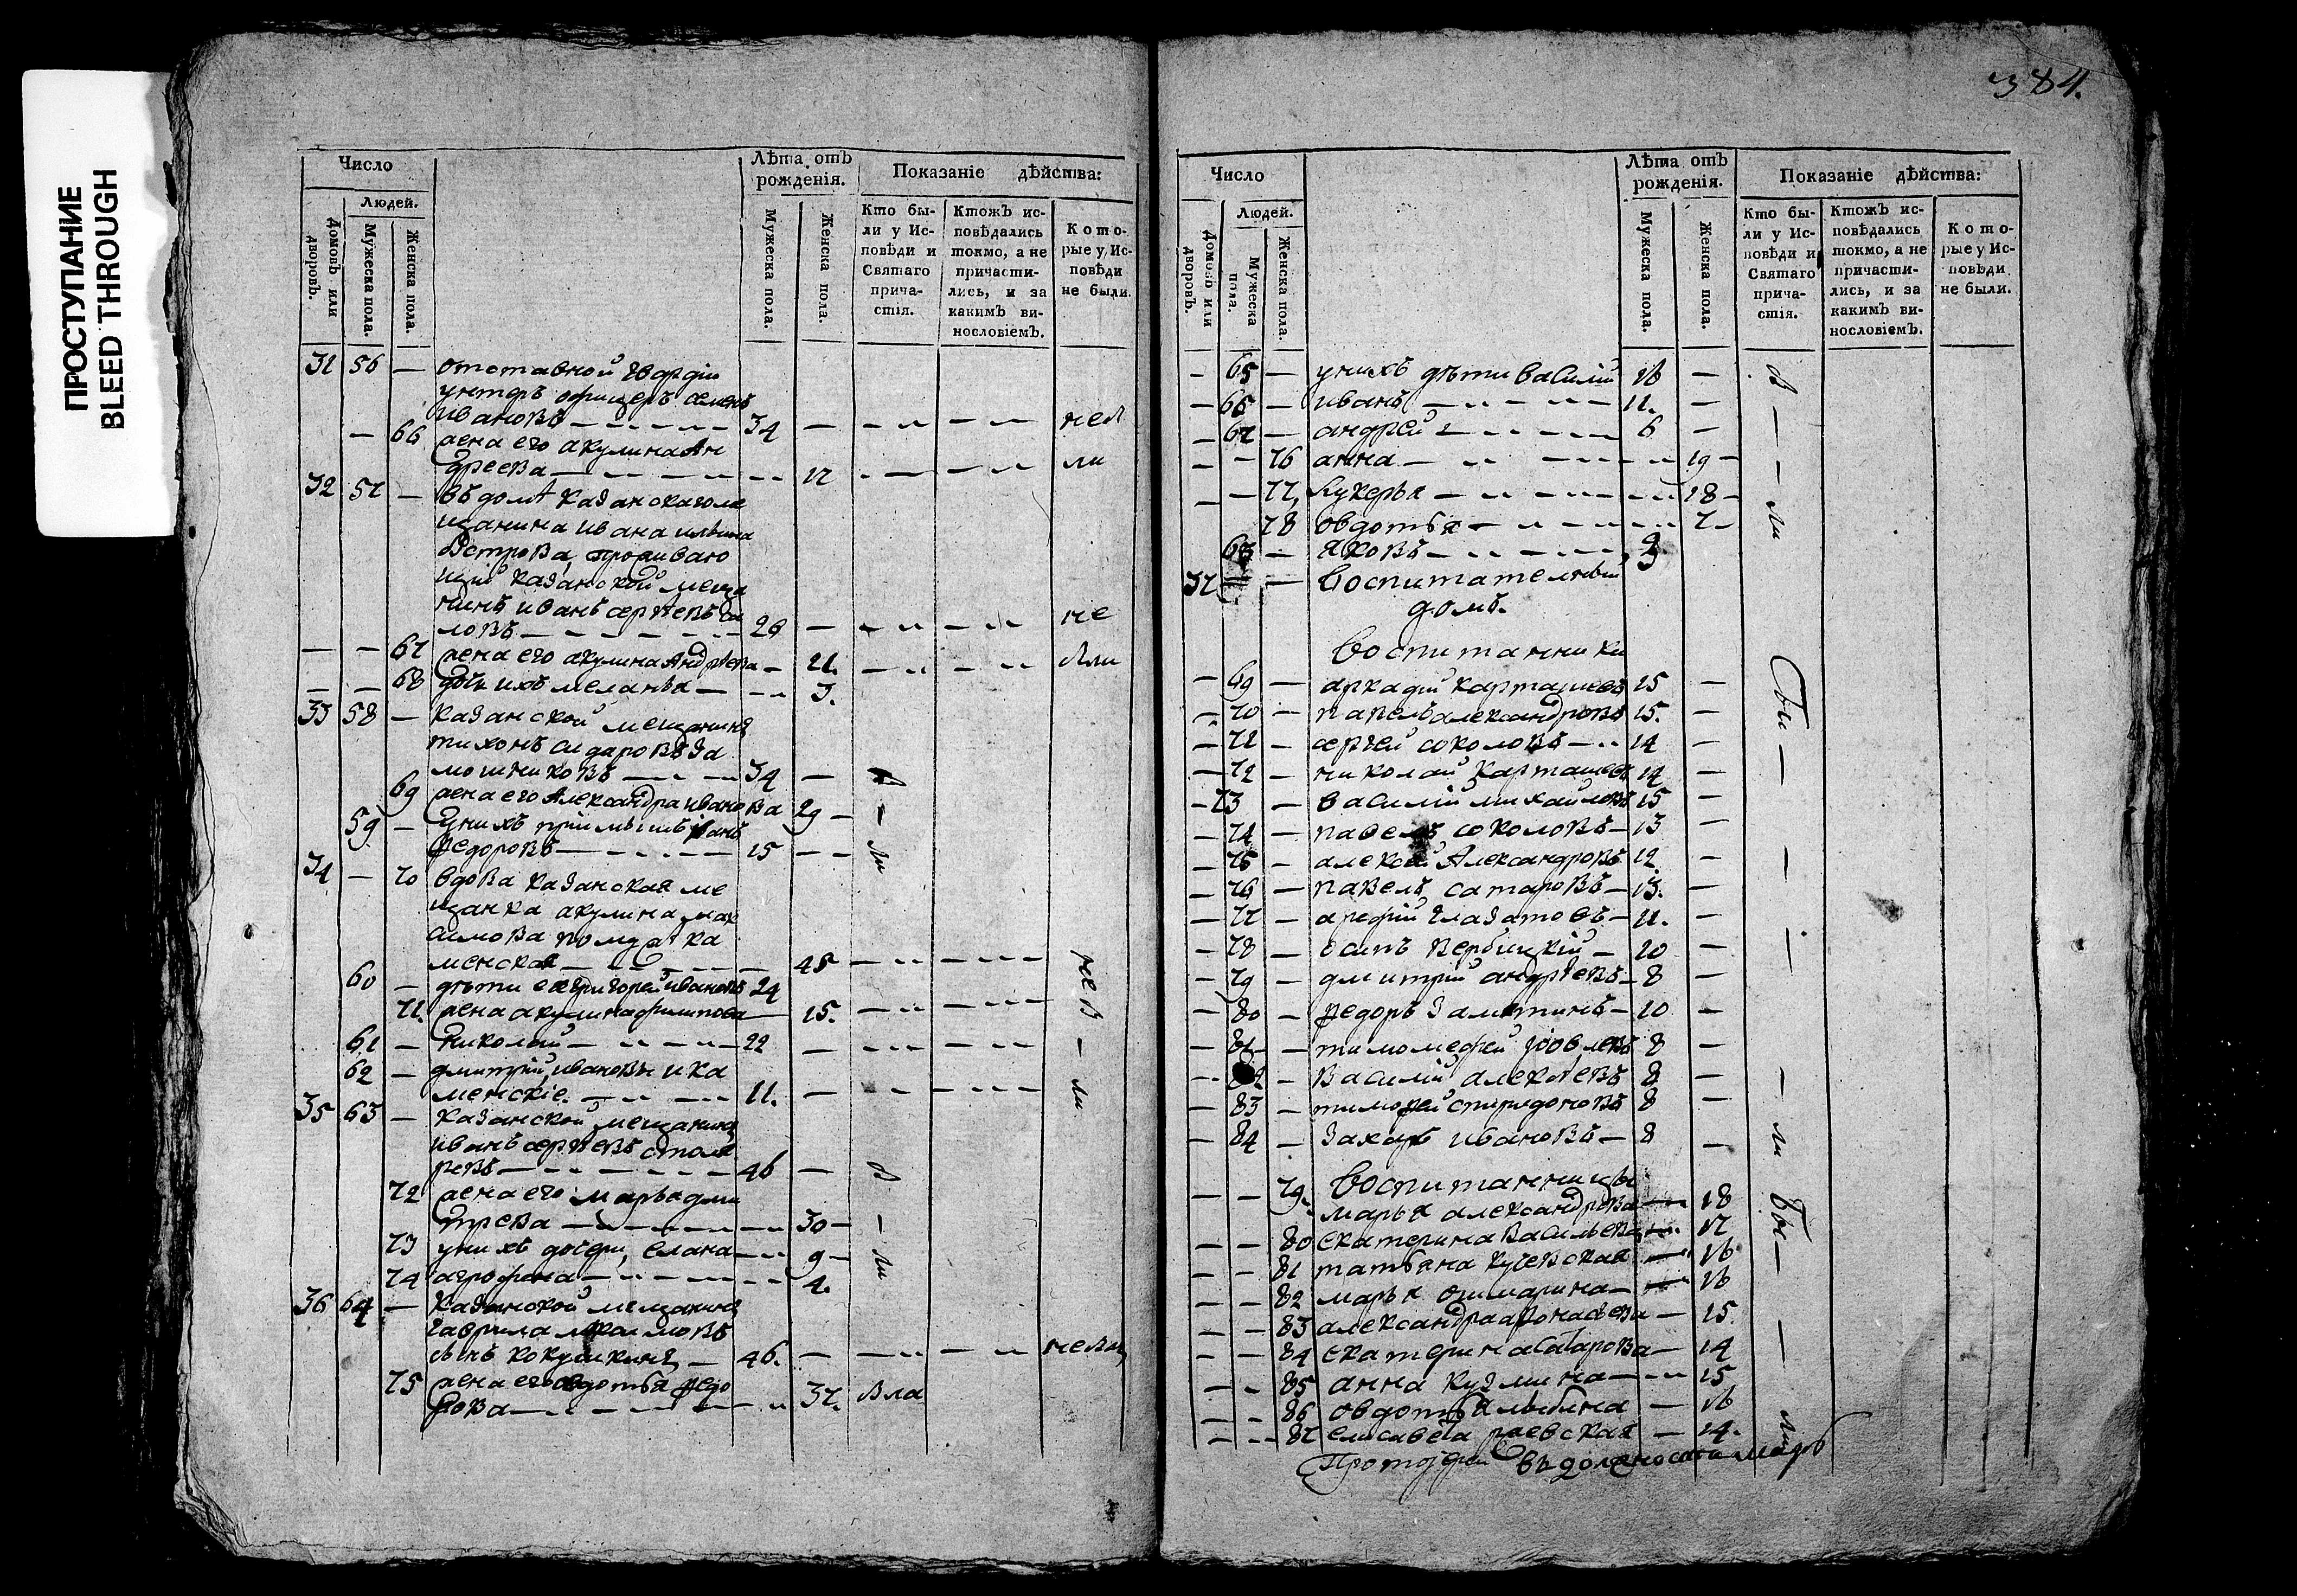 ПРОСТУПАНИЕ
BLEED THROUGH
384.
Число
Лѣта отъ рожденія.
Показаніе дѣйства:
Людей.
Домовъ или дворовъ.
Мужеска пола.
Женска пола.
Мужеска пола.
Женска пола.
Кто были у Исповѣди и Святаго причастія.
Ктожъ исповѣдались токмо, а не причастились, и за какимъ винословіемъ.
Которые у Исповѣди не были.
31 56 — отставной гвардіи
унтеръ офицеръ семенъ
ивановъ 34 —
— 66 жена его акулина Ан
дреева 17
32 57 — въ домѣ казанскаго ме
щанина ивана
проживаю
щій казанской меща
нинъ иванъ сергѣевъ
ловъ 26 — не
— — 67 жена его акулина Андрѣева — 21. — были
— — 68 дочь ихъ меланья 3.
33 58 — казанской мещанинъ
тихонъ сидаровъ За
мошниковъ 34 —
69 жена его Александра иванова 29
59 — у нихъ пріимышъ иванъ
федоровъ 15 — ли
34 — 70 вдова казанская ме
щанка акулина мак
симова ка
менская 45
60 — дѣти ея григорей ивановъ 24
71. жена акулина филипова 15.
61 — николай 22 —
62 — дмитрій, ивановы ка
менскіе. 11. — ли
35 63 — казанской мещанинъ
иванъ сергѣевъ столя
ревъ 46 —
72 жена его марья дми
трева 30 —
73 у нихъ дочери, елана 9 — ли
74 агрофена 4.
36 64 — казанской мещанинъ
гаврила максимовъ
сынъ кокушкинъ 46.
75 жена его авдотья федо
рова 37. была
Число
Лѣта отъ рожденія.
Показаніе дѣйства:
Людей.
Домовъ или дворовъ.
Мужеска пола.
Женска пола.
Мужеска пола.
Женска пола.
Кто были у Исповѣди и Святаго причастія.
Ктожъ исповѣдались токмо, а не причастились, и за какимъ винословіемъ.
Которые у Исповѣди не были.
— 65 — у нихъ дѣти василій 16 —
— 66 — иванъ 11. —
— 67 — андрей 6 —
— — 76 анна 19 —
— — 77, лукерья 18 — ли
78 овдотья 7 —
68 — яковъ
37 — Воспитательный
домъ.
Воспитанники
— 69 — аркадій карташевъ 15 — бы
— 70 — павелъ александровъ 15. —
— 71 — сергей соколовъ 14 —
— 72 — николай карташевъ 14 —
— 73 — василій михайловъ 15 —
— 74 — павелъ соколовъ 13 —
— 75 — алексей Александровъ 12 —
— 76 — павелъ сатаровъ 13. —
— 77 — арефій 11. —
— 78 — осипъ вербицкій 10 —
— 79 — дмитрій андрѣевъ 8 —
— 80 — федоръ замятинъ 10 —
— 81 — тимофей 8 —
— 82 — василій алексѣевъ 8 —
— 83 — тимофей спиридоновъ 8 —
— 84 — захаръ ивановъ 8 — ли
Воспитанницы
— — 79. марья александрова 18 бы
— — 80 екатерина васильева 17
— — 81 татьяна 16
— — 82 марья 16
— — 83 александра афонасьева 15.
— — 84 екатерина сатарова 14
— — 85 анна кузмина 15
— — 86 овдотья 16
— — 87 елисавета раевская 14. ли
Протоіерей